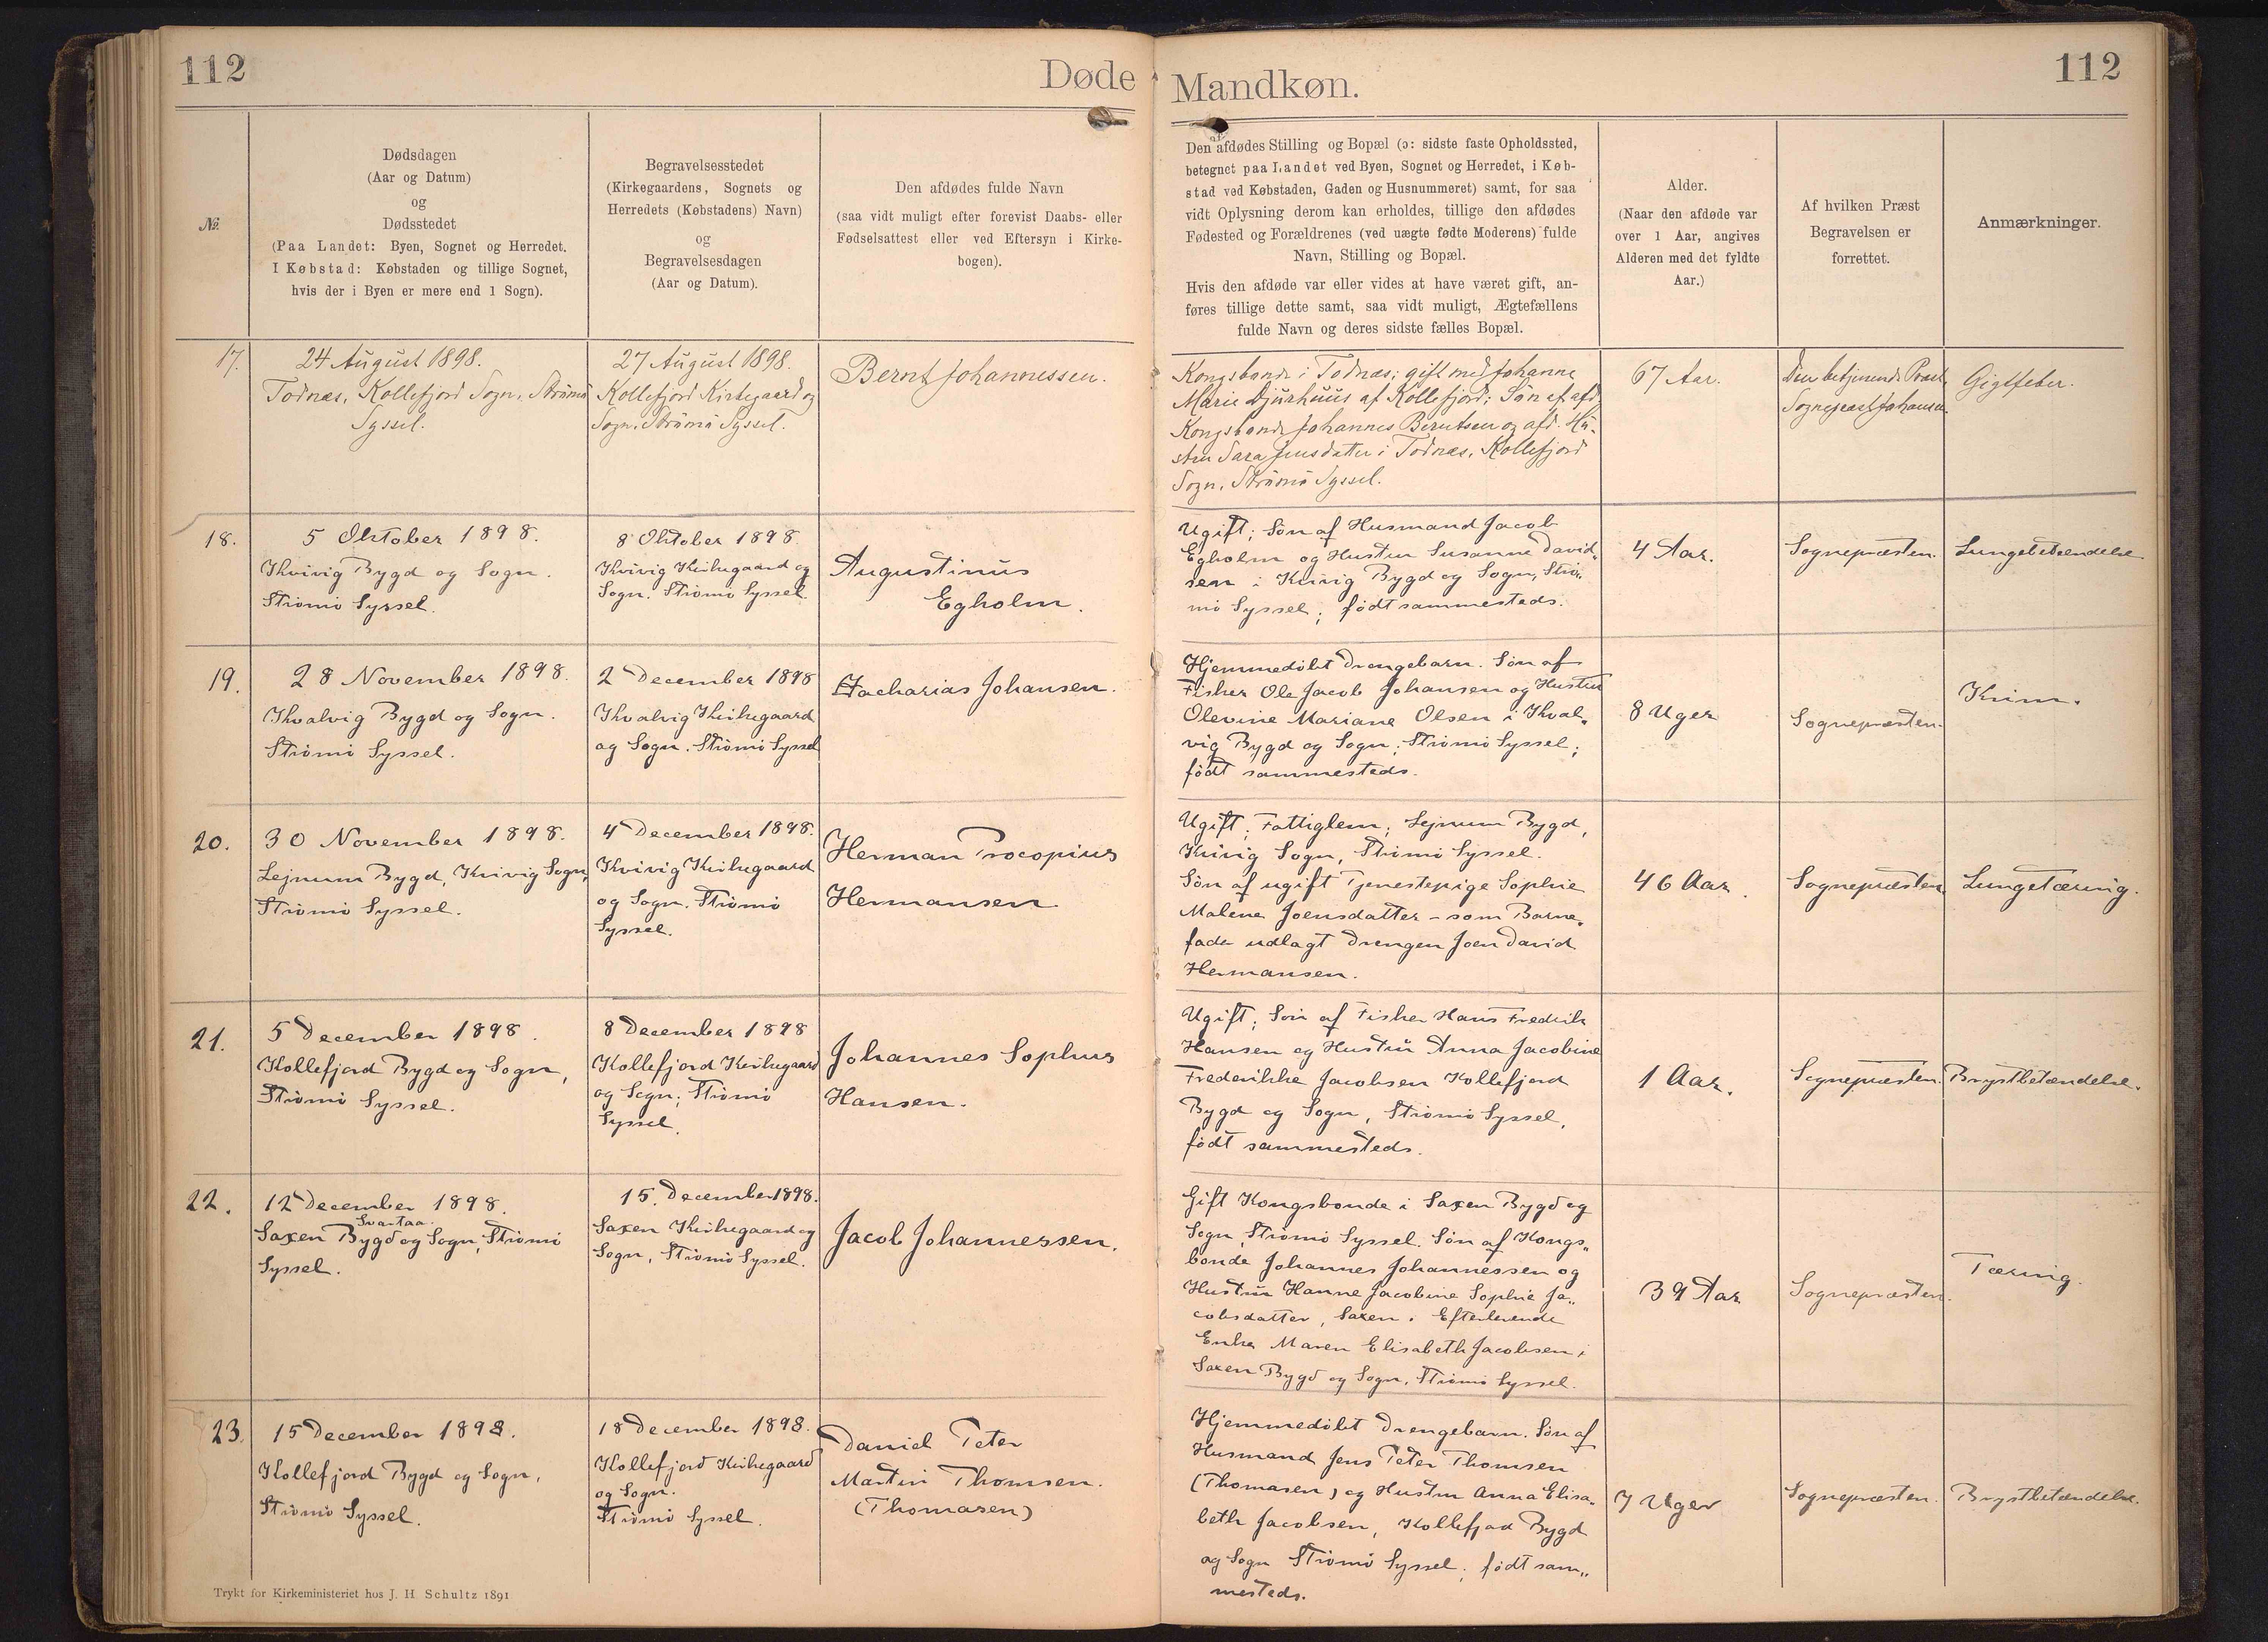 112
Døde
Mandkøn.
112
№
Dødsdagen
(Aar og Datum)
og
Dødsstedet
(Paa Landet: Byen, Sognet og Herredet.
I Købstad: Købstaden og tillige Sognet,
hvis der i Byen er mere end 1 Sogn).
Begravelsesstedet
(Kirkegaardens, Sognets og
Herredets (Købstadens) Navn)
og
Begravelsesdagen
(Aar og Datum).
Den afdødes fulde Navn
(saa vidt muligt efter forevist Daabs- eller
Fødselsattest eller ved Eftersyn i Kirke-
bogen).
Den afdødes Stilling og Bopæl (ɔ: sidste faste Opholdssted,
betegnet paa Landet ved Byen, Sognet og Herredet, i Køb-
stad ved Købstaden, Gaden og Husnummeret) samt, for saa
vidt Oplysning derom kan erholdes, tillige den afdødes
Fødested og Forældrenes (ved uægte fødte Moderens) fulde
Navn, Stilling og Bopæl.
Hvis den afdøde var eller vides at have været gift, an-
føres tillige dette samt, saa vidt muligt, Ægtefællens
fulde Navn og deres sidste fælles Bopæl.
Alder.
(Naar den afdøde var
over 1 Aar, angives
Alderen med det fyldte
Aar.)
Af hvilken Præst
Begravelsen er
forrettet.
Anmærkninger.
17.
24 August 1898.
Todnæs, Kollefjord Sogn, Strømø
Syssel.
27 August 1898.
Kollefjord Kirkegaard og
Sogn. Strømø Syssel.
Bernt Johannessen.
Kongsbonde i Todnæs; gift med Johanne
Marie Djurhuus af Kollefjord; Søn af afd.
Kongsbonde Johannes Berntsen og afd. Hu-
stru Sara Jensdatter i Todnæs, Kollefjord
Sogn, Strømø Syssel.
67 Aar.
Den betjenende Præst,
Sognepræst Johansen.
Gigtfeber.
18.
5 Oktober 1898.
Kvivig Bygd og Sogn.
Strømø Syssel.
8 Oktober 1898.
Kvivig Kirkegaard og
Sogn. Strømø Syssel.
Augustinus
Egholm.
Ugift; Søn af Husmand Jacob
Egholm og Hustru Susanne David-
sen i Kvivig Bygd og Sogn, Strø-
mø Syssel; født sammesteds.
4 Aar.
Sognepræsten.
Lungebetændelse.
19.
28 November 1898.
Kvalvig Bygd og Sogn.
Strømø Syssel.
2 December 1898
Kvalvig Kirkegaard
og Sogn. Strømø Syssel
Zacharias Johansen.
Hjemmedøbt Drengebarn. Søn af
Fisker Ole Jacob Johansen og Hustru
Olevine Mariane Olsen i Kval-
vig Bygd og Sogn; Strømø Syssel;
født sammesteds.
8 Uger
Sognepræsten.
Krim.
20.
30 November 1898.
Lejnum Bygd, Kvivig Sogn,
Strømø Syssel.
4 December 1898.
Kvivig Kirkegaard
og Sogn. Strømø
Syssel.
Herman Procopius
Hermansen
Ugift; Fattiglem; Lejnum Bygd,
Kvivig Sogn, Strømø Syssel.
Søn af ugift Tjenestepige Sophie
Malene Joensdatter – som Barne-
fader udlagt Drengen Joen David
Hermansen.
46 Aar.
Sognepræsten.
Lungetæring.
21.
5 December 1898.
Kollefjord Bygd og Sogn,
Strømø Syssel.
8 December 1898
Kollefjord Kirkegaard
og Sogn; Strømø
Syssel.
Johannes Sophus
Hansen.
Ugift; Søn af Fisker Hans Fredrik
Hansen og Hustru Anna Jacobine
Frederikke Jacobsen Kollefjord
Bygd og Sogn, Strømø Syssel,
født sammesteds.
1 Aar.
Sognepræsten.
Brystbetændelse.
22.
12 December 1898.
Svartaa.
Saxen Bygd og Sogn, Strømø
Syssel.
15. December 1898.
Saxen Kirkegaard og
Sogn, Strømø Syssel.
Jacob Johannessen.
Gift Kongsbonde i Saxen Bygd og
Sogn, Strømø Syssel. Søn af Kongs-
bonde Johannes Johannessen og
Hustru Hanne Jacobine Sophie Ja-
cobsdatter, Saxen. Efterlevende
Enke Maren Elisabeth Jacobsen i
Saxen Bygd og Sogn, Strømø Syssel.
39 Aar
Sognepræsten.
Tæring.
23.
15 December 1898.
Kollefjord Bygd og Sogn,
Strømø Syssel.
18 December 1898.
Kollefjord Kirkegaard
og Sogn.
Strømø Syssel.
Daniel Peter
Martin Thomsen.
(Thomasen)
Hjemmedøbt Drengebarn. Søn af
Husmand Jens Peter Thomsen
(Thomasen) og Hustru Anna Elisa-
beth Jacobsen, Kollefjord Bygd
og Sogn Strømø Syssel; født sam-
mesteds.
7 Uger
Sognepræsten.
Brystbetændelse.
Trykt for Kirkeministeriet hos J. H Schultz 1891